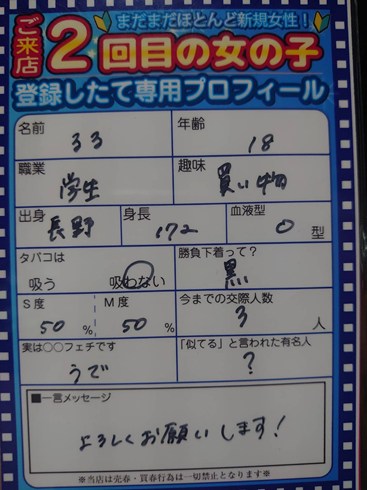 まだまだほとんど新規女性！
ご来店2回目の女の子
登録したて専用プロフィール
名前 33 年齢 18
職業 学生 趣味 買い物
出身 長野 身長 172 血液型 O 型
タバコは 吸う 吸わない 勝負下着って？ 黒
S度 50 % M度 50 % 今までの交際人数 3 人
実は○○フェチです うで 「似てる」と言われた有名人 ？
■一言メッセージ
よろしくお願いします！
※当店は売春・買春行為は一切禁止となります※